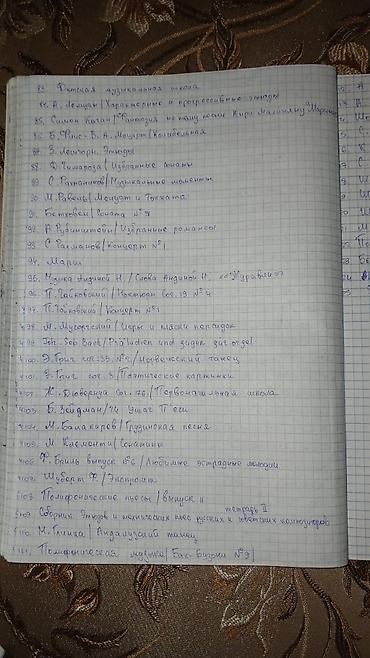 83. Детская музыкальная школа
84. А. Лемуан / Характерные и прогрессивные этюды
85. Симон Каган / Фантазия на тему поэмы Кири Малилану Маркин
86. Б. Флис - В. А. Моцарт / Колыбельная
87. З. Лешгорн. Этюды
88. Д. Чимароза / Избранные сонаты
89. С. Рахманинов / Музыкальные моменты
90. М. Равель / Менуэт и Токката
91. Бетховен / Соната № 7
92. А. Рубинштейн / Избранные романсы
93. С. Рахманов / Концерт № 1
94. Марш
95. Музыка Андиной Н. / Слова Андиной Н. <<Журавли>>
96. П. Чайковский / Ноктюрн соч. 19 № 4
97. П. Чайковский / Концерт № 1
98. М. Мусоргский / Игры и пляски персидок
99. Joh. Seb. Bach / Präludien und Fugen für orgel
100. Э. Григ соч. 35 № 2 / Норвежский танец
101. Э. Григ соч. 3 / Поэтические картинки
102. Ж. Дювернуа соч. 176 / Первоначальная школа
103. Б. Зейдман / 24
104. М. Балакирев / Грузинская песня
105. М. Клементи / Сонатины
106. Ф. Бриль выпуск № 6 / Любимые эстрадные мелодии
107. Шуберт Ф. / Экспромт
108. Полифонические пьесы / выпуск II
109. Сборник Этюдов и технических пьес русских и советских композиторов тетрадь II
110. М. Глинка / Андалузский танец
111. Полифоническая музыка / Бах - Бузони № 9 /